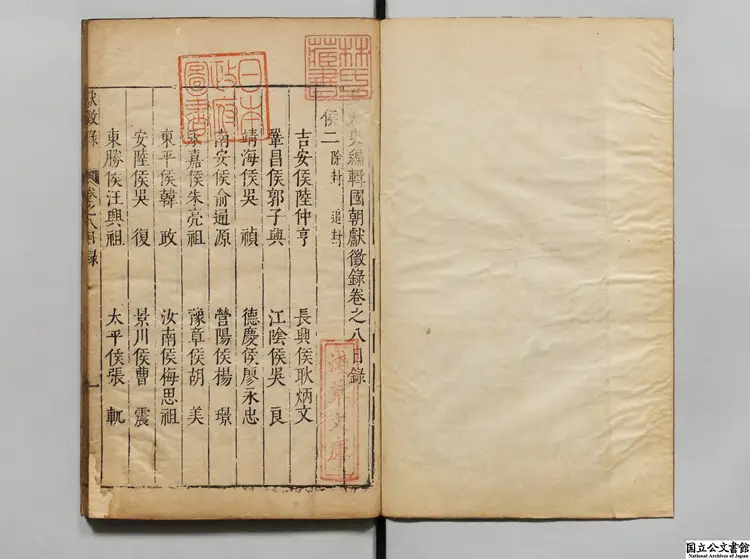 林氏藏書
日本政府圖書
史編輯國朝獻徵錄卷之八目錄
侯二 除封 追封
吉安侯陸仲亨 長興侯耿炳文
鞏昌侯郭子興 江陰侯吳良
靖海侯吳禎 德慶侯廖永忠
南安侯俞通源 營陽侯楊璟
永嘉侯朱亮祖 豫章侯胡美
東平侯韓政 汝南侯梅思祖
安陸侯吳復 景川侯曹震
東勝侯汪興祖 太平侯張軏
獻徵錄 卷之八目錄 一
淺草文庫
国立公文書館
National Archives of Japan